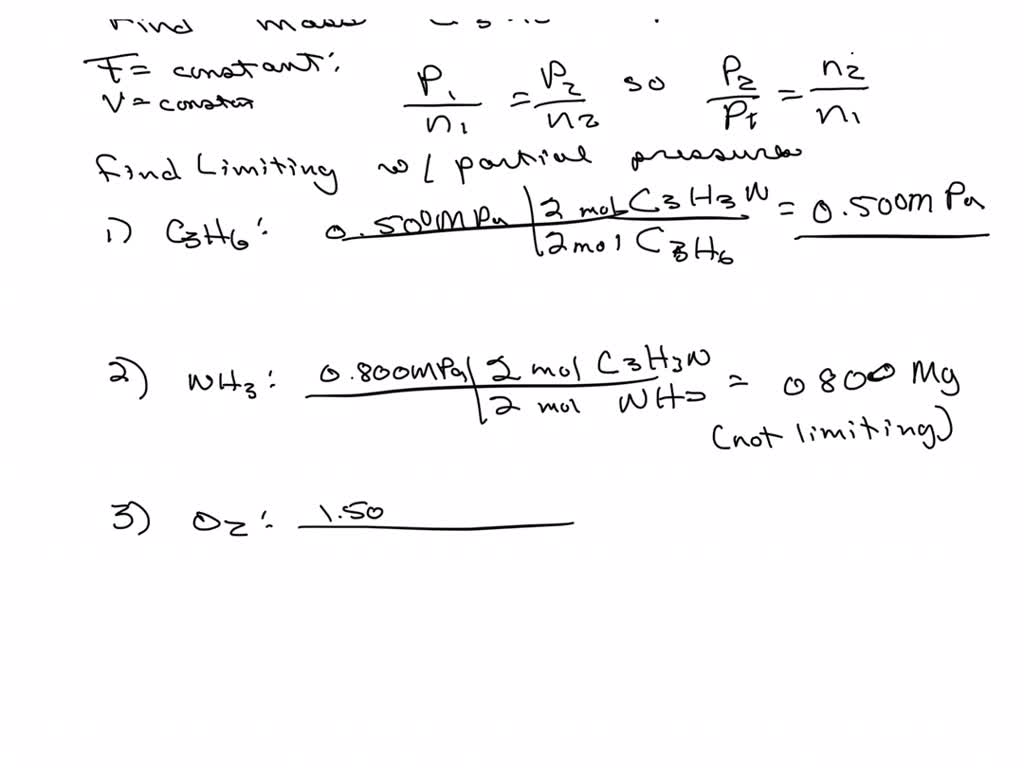 Find mass
T = constant:
V = constan
P1/n1 = P2/n2 so P2/Pt = n2/n1
Find Limiting w/ partial pressures
1) C3H6: 0.500MPa | 2 mol C3H3N / 2 mol C3H6 = 0.500MPa
2) NH3: 0.800MPa | 2 mol C3H3N / 2 mol NH3 = 0800 Mg
(not limiting)
3) O2: 1.50